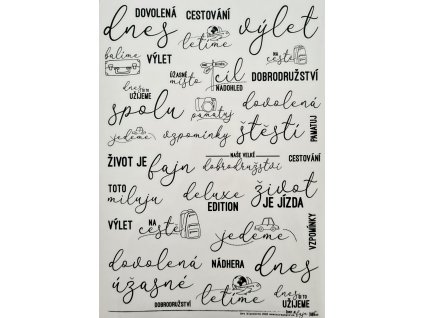 DOVOLENÁ
CESTOVÁNÍ
dnes
letíme
výlet
balíme
VÝLET
NA
cestě
ÚŽASNÉ
místo
cíl
NADOHLED
DOBRODRUŽSTVÍ
dnes
SI TO
UŽIJEME
spolu
pamatuj
dovolená
jedeme
vzpomínky
štěstí
PAMATUJ
ŽIVOT JE
fajn
NAŠE VELKÉ
dobrodružství
CESTOVÁNÍ
TOTO
miluju
deluxe
EDITION
život
JE JÍZDA
VÝLET
NA
cestě
jedeme
VZPOMÍNKY
dovolená
NÁDHERA
dnes
úžasné
DOBRODRUŽSTVÍ
letíme
dnes
SI TO
UŽIJEME